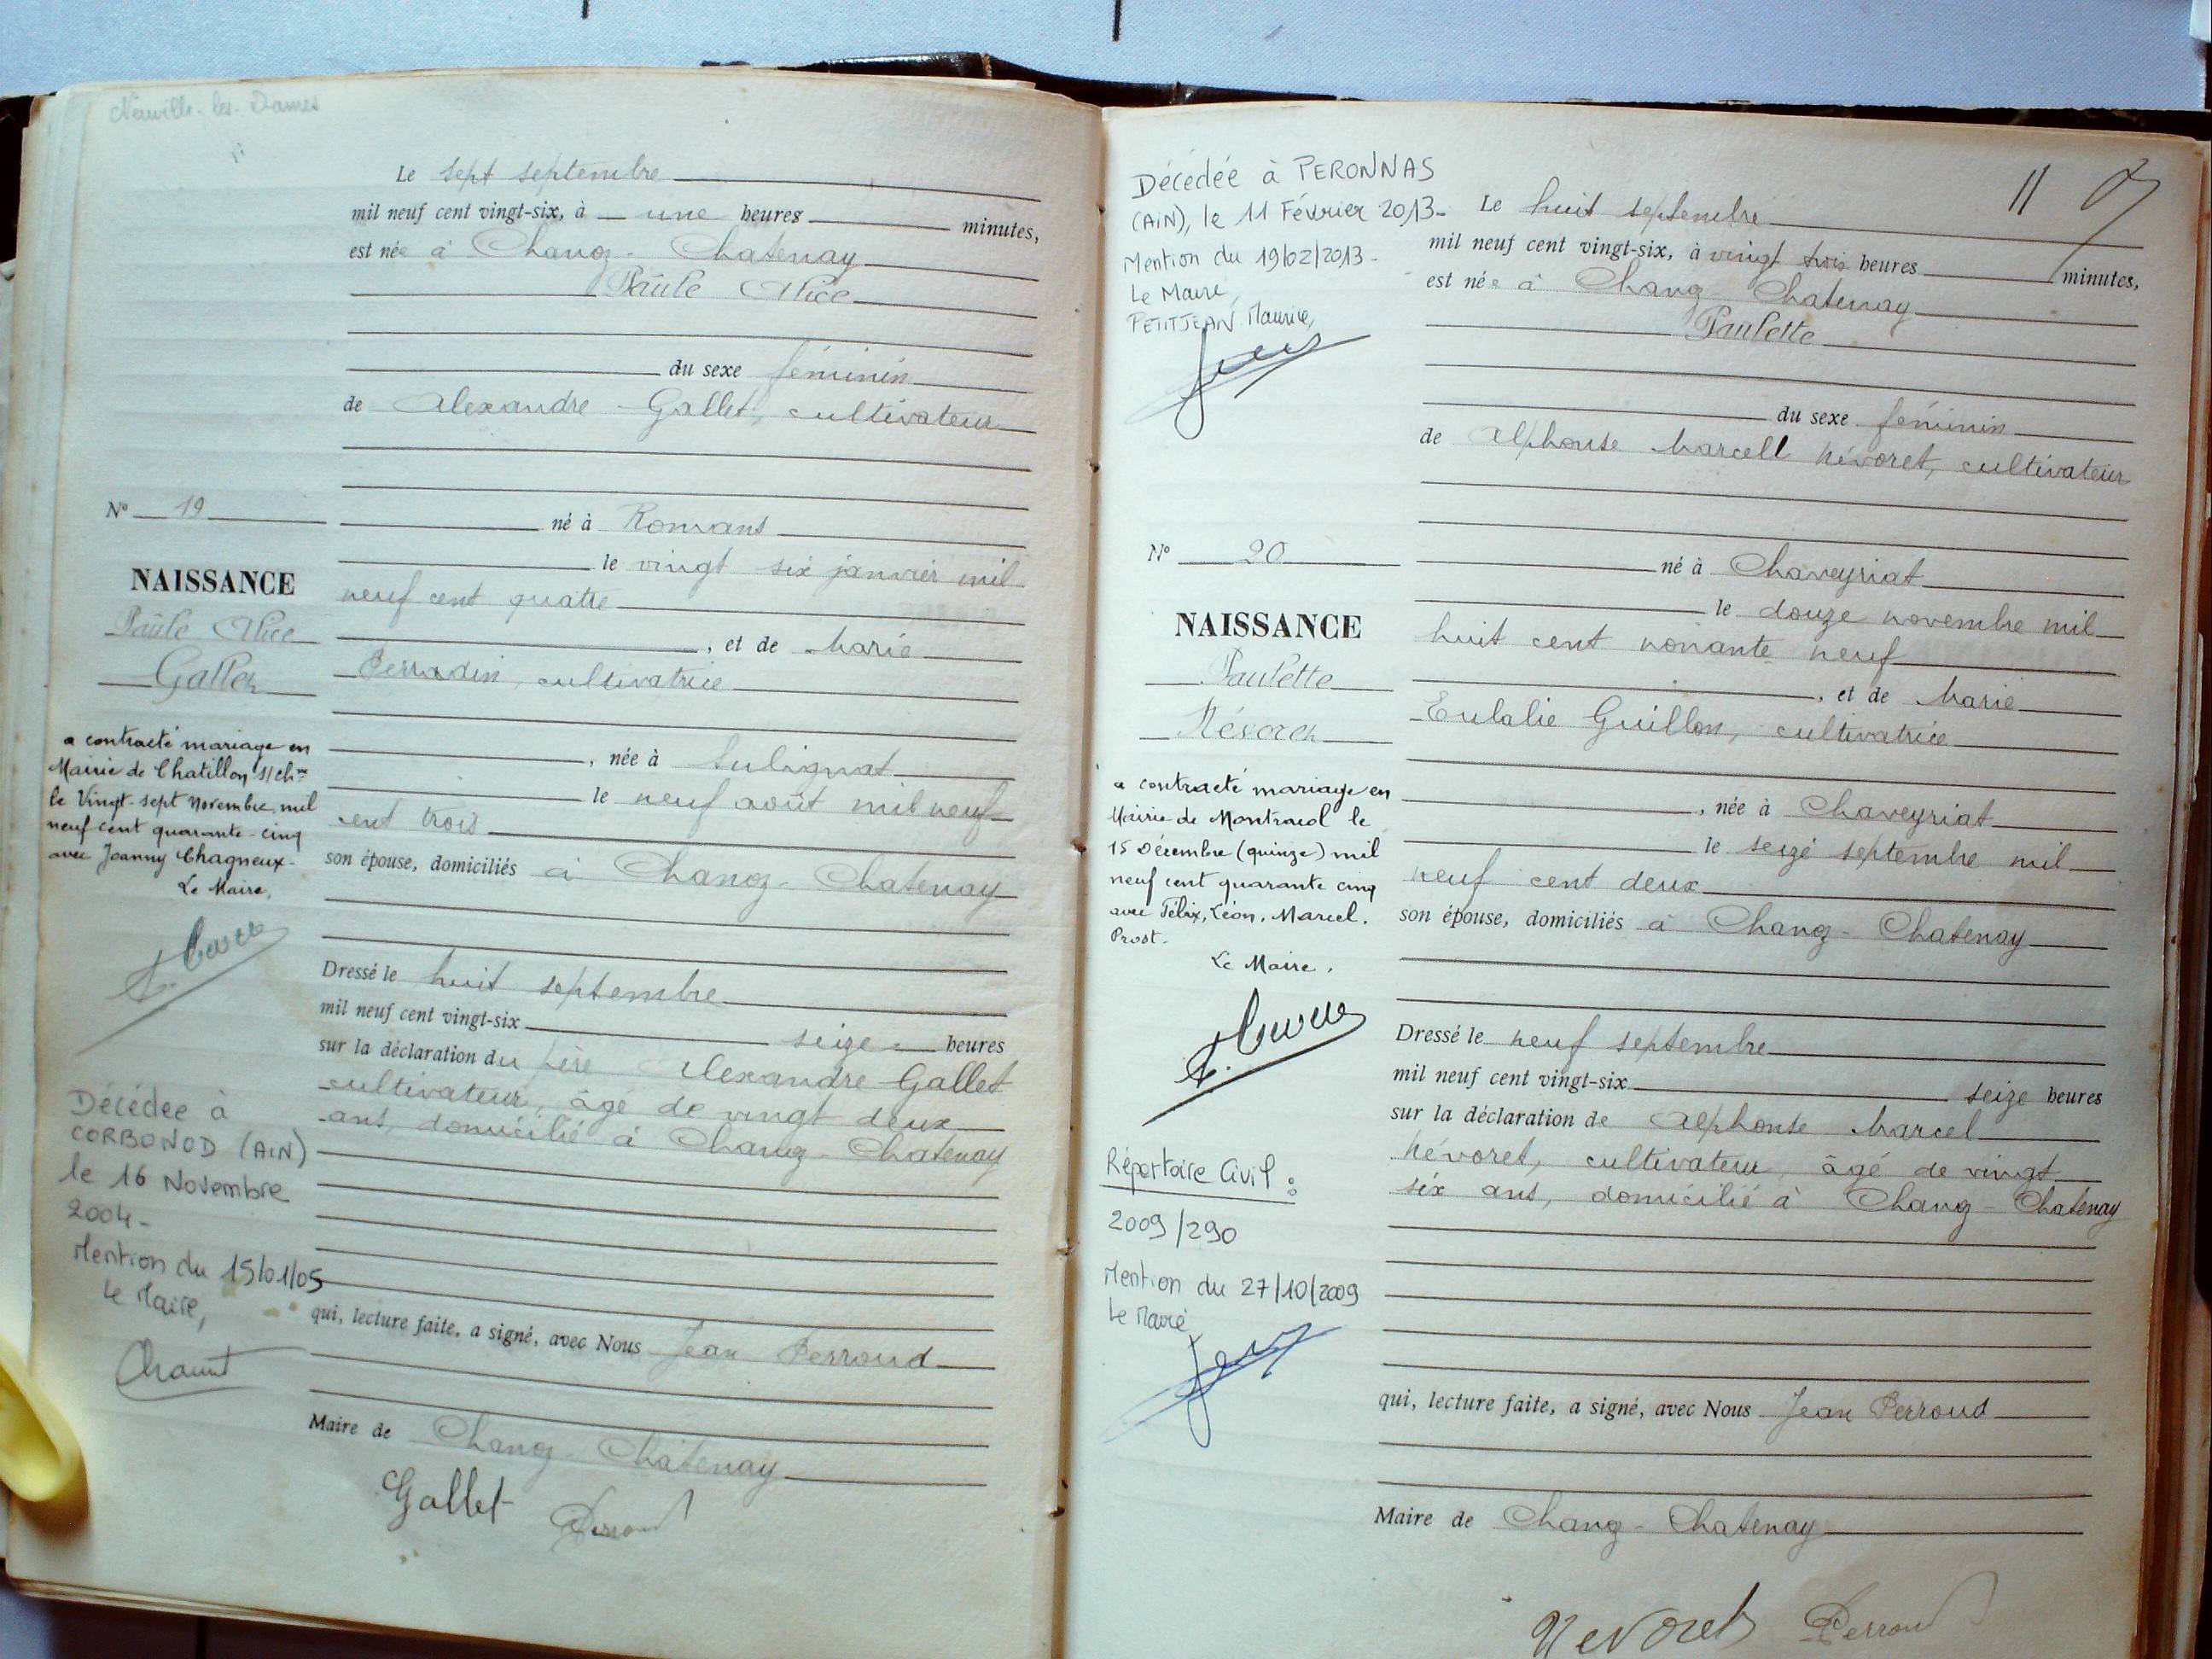 Neuville-les-Dames
Le sept septembre
mil neuf cent vingt-six, à une heures minutes,
est née à Chanoz-Chatenay
Paule Alice
du sexe féminin
de Alexandre Gallet, cultivateur
né à Romans
le vingt six janvier mil
neuf cent quatre
, et de Marie
Perradin, cultivatrice
, née à Sulignat
le neuf août mil neuf
cent trois
son épouse, domiciliés à Chanoz-Chatenay
Dressé le huit septembre
mil neuf cent vingt-six seize heures
sur la déclaration du père Alexandre Gallet
cultivateur, âgé de vingt deux
ans, domicilié à Chanoz-Chatenay
qui, lecture faite, a signé, avec Nous Jean Perroud
Maire de Chanoz-Chatenay
Gallet Perroud
N° 19
NAISSANCE
Paule Alice
Gallet
a contracté mariage en
Mairie de Chatillon s/chne
le Vingt-sept Novembre mil
neuf cent quarante-cinq
avec Joanny Chagneux.
Le Maire,
Décédée à
CORBONOD (AIN)
le 16 Novembre
2004-
Mention du 15/01/05
Le Maire,
11
Décédée à PERONNAS
(AIN), le 11 Février 2013-
Mention du 19/02/2013-
Le Maire,
PETITJEAN Maurice,
Le huit septembre
mil neuf cent vingt-six, à vingt trois heures minutes,
est née à Chanoz Chatenay
Paulette
du sexe féminin
de Alphonse Marcell Névoret, cultivateur
né à Chaveyriat
le douze novembre mil
huit cent nonante neuf
, et de Marie
Eulalie Guillon, cultivatrice
, née à Chaveyriat
le seize septembre mil
neuf cent deux
son épouse, domiciliés à Chanoz-Chatenay
Dressé le neuf septembre
mil neuf cent vingt-six seize heures
sur la déclaration de Alphonse Marcel
Névoret, cultivateur, âgé de vingt
six ans, domicilié à Chanoz-Chatenay
qui, lecture faite, a signé, avec Nous Jean Perroud
Maire de Chanoz-Chatenay
Nevoret Perroud
N° 20
NAISSANCE
Paulette
Névoret
a contracté mariage en
Mairie de Montracol le
15 Décembre (quinze) mil
neuf cent quarante cinq
avec Félix, Léon, Marcel.
Prost.
Le Maire,
Répertoire Civil :
2009/290
Mention du 27/10/2009
Le Maire